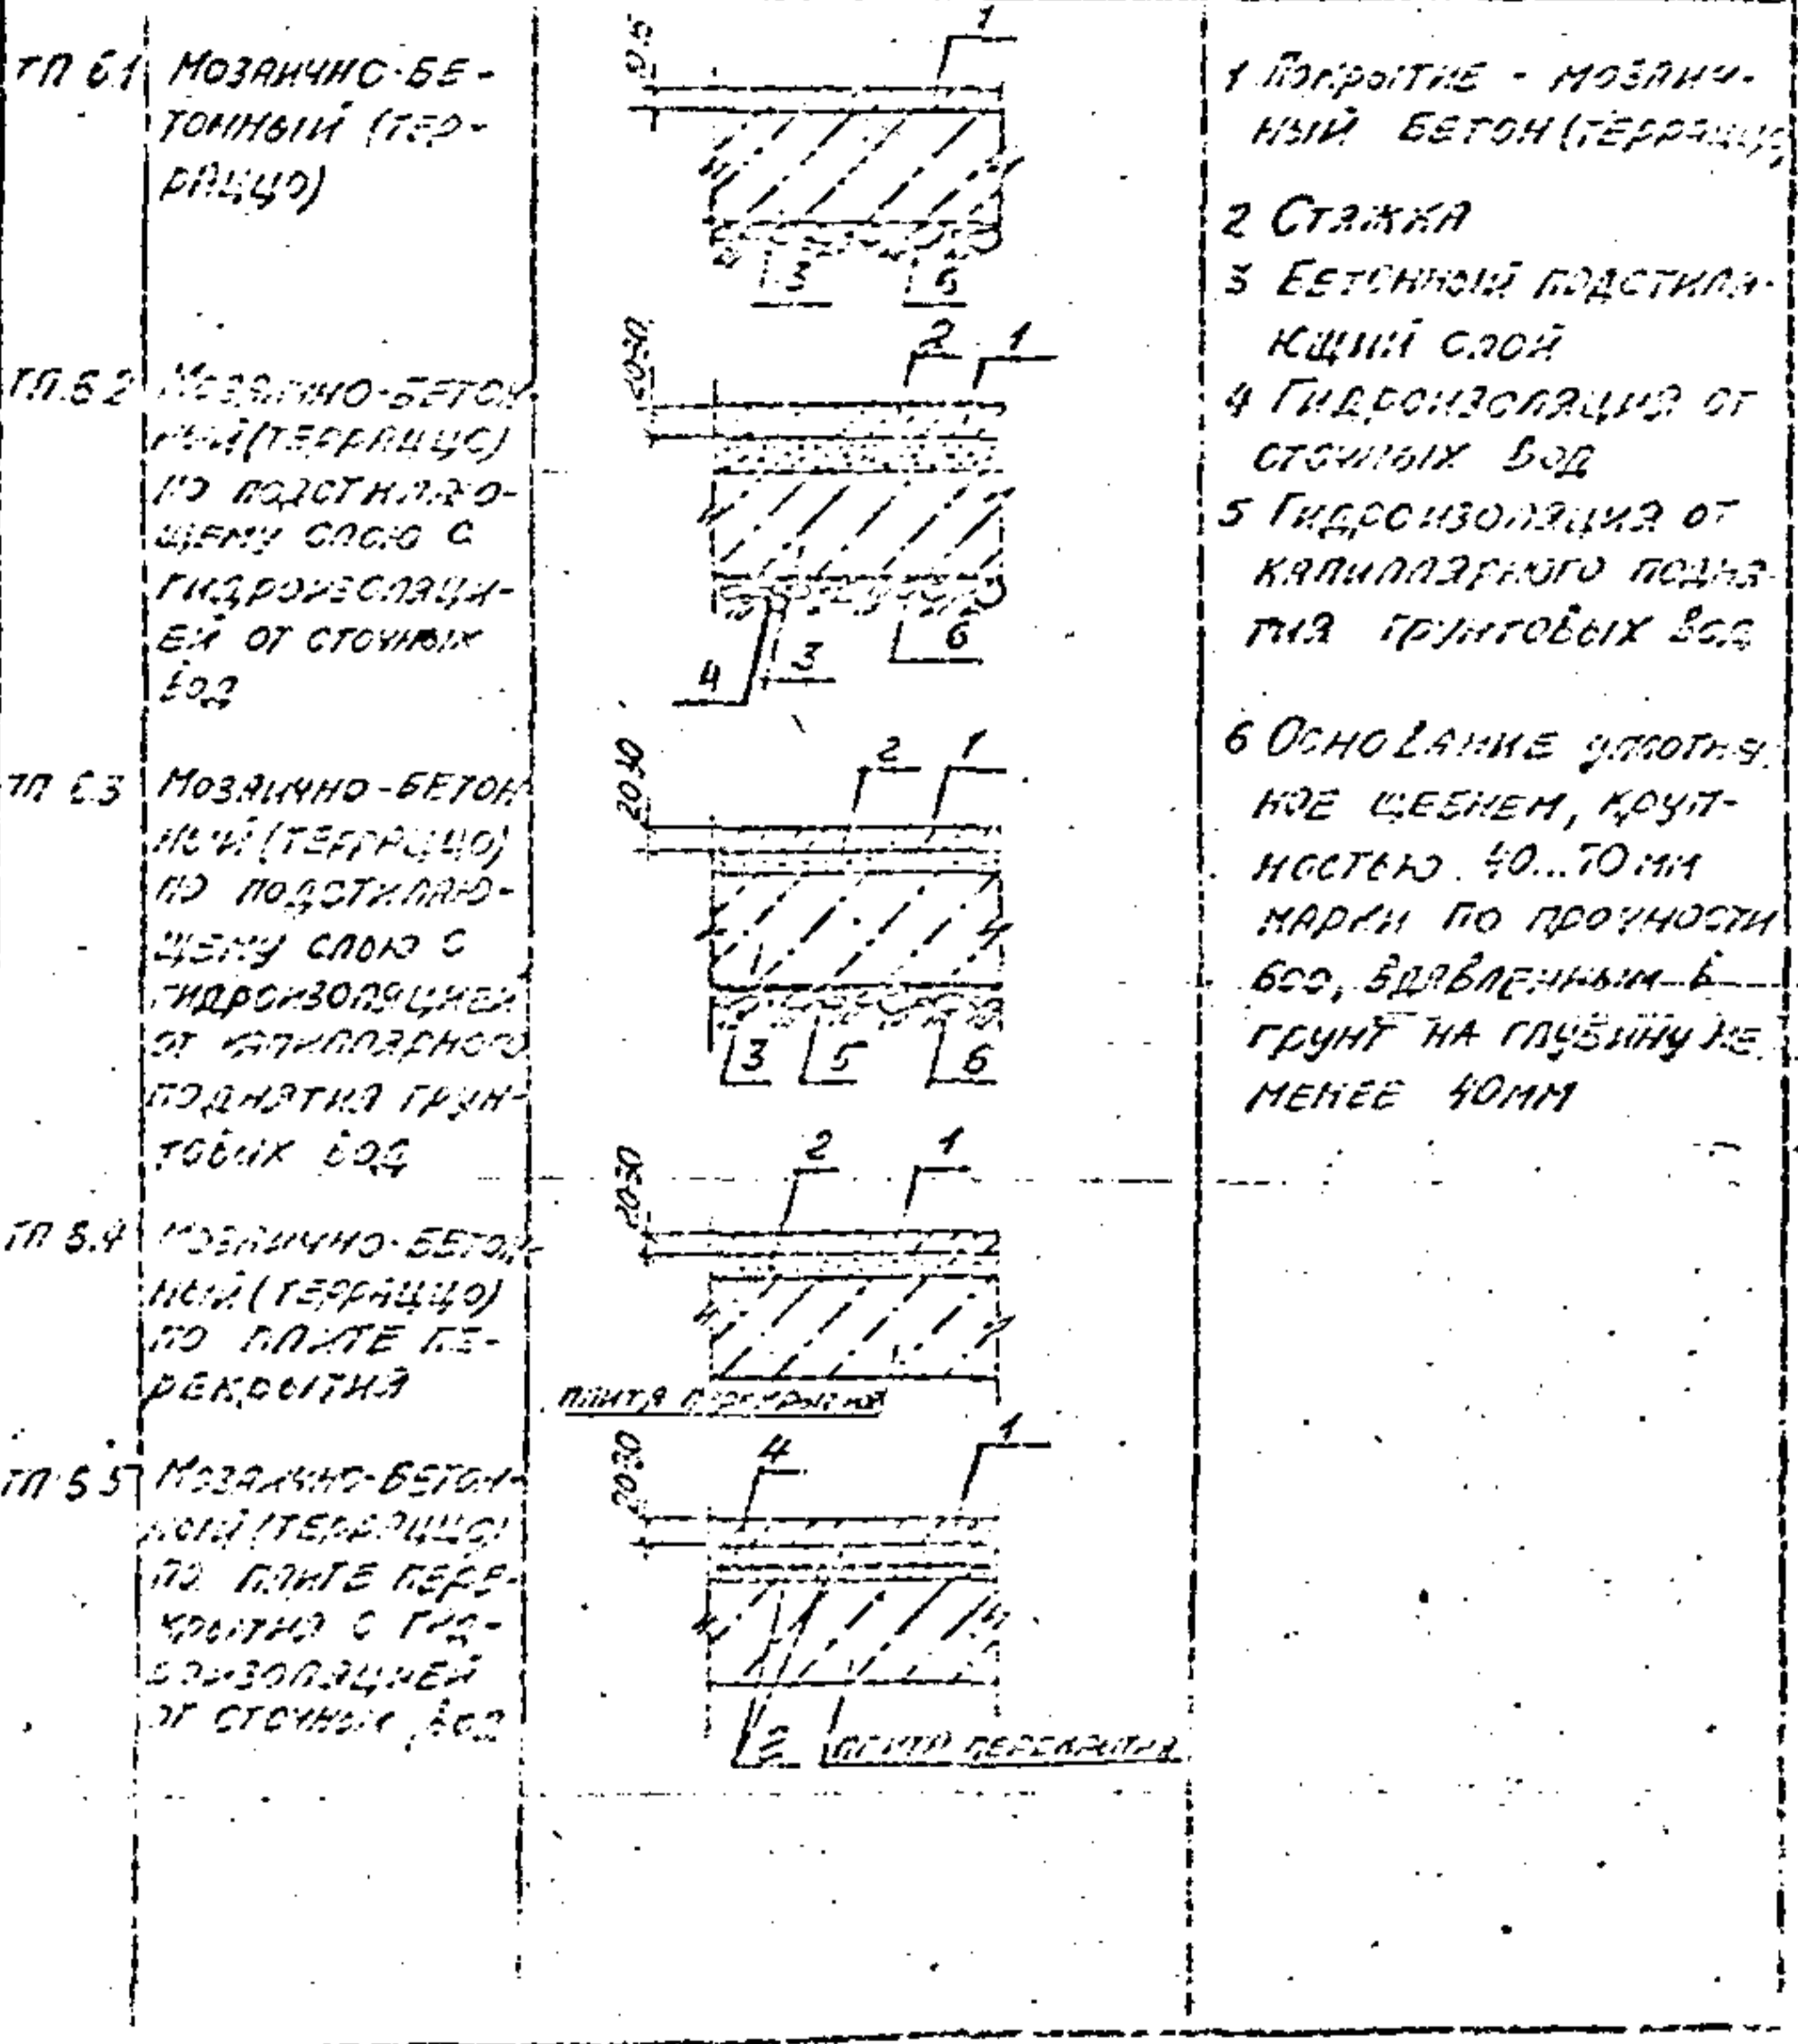 ТП 6.1
Мозаично-бе-
тонный (тер-
раццо)
1
3 6
ТП 6.2
Мозаично-бетон-
ный (терраццо)
по подстилаю-
щему слою с
гидроизоляци-
ей от сточных
вод
20-30
2 1
4 3 6
ТП 6.3
Мозаично-бетон-
ный (терраццо)
по подстилаю-
щему слою с
гидроизоляцией
от капиллярного
поднятия грун-
товых вод
20-30
2 1
3 5 6
ТП 6.4
Мозаично-бетон-
ный (терраццо)
по плите пе-
рекрытия
20-30
2 1
плита перекрытия
ТП 6.5
Мозаично-бетон-
ный (терраццо)
по плите пере-
крытия с гид-
роизоляцией
от сточных вод
20-30
4 1
2 плита перекрытия
1 Покрытие - мозаич-
ный бетон (терраццо)
2 Стяжка
3 Бетонный подстила-
ющий слой
4 Гидроизоляция от
сточных вод
5 Гидроизоляция от
капиллярного подня-
тия грунтовых вод
6 Основание уплотнен-
ное щебнем, круп-
ностью 40...70мм
марки по прочности
600, вдавленным в
грунт на глубину не
менее 40мм